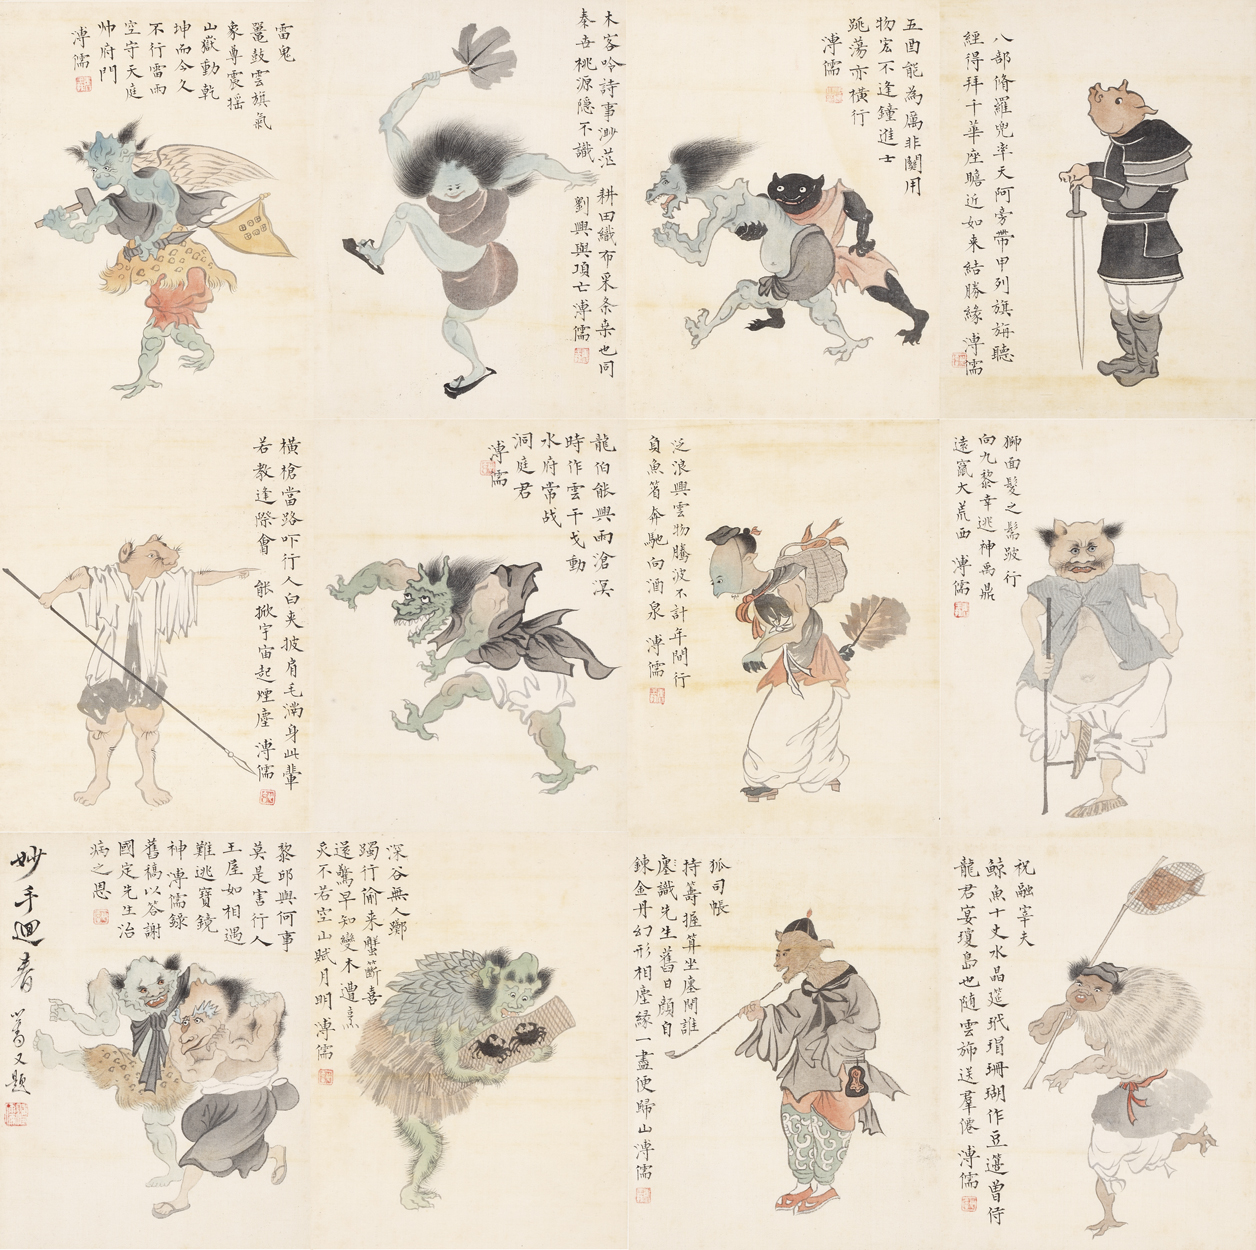 八部脩羅兜率天阿旁帶甲列旗旃聽
經得拜千華座瞻近如来結勝緣 溥儒
五酉能為厲非關用
物宏不逢鐘進士
跳蕩亦橫行
溥儒
木客吟詩事渺茫 耕田織布采条桑也同
秦世桃源隱不識 劉興與項亡 溥儒
雷鬼
鼉鼓雲旗氣
象尊震搖
山嶽動乾
坤而今久
不行雷雨
空守天庭
帥府門
溥儒
獅面髮之 號行
向九黎幸逃神禹鼎
遠竄大荒西 溥儒
泛浪興雲物騰波不計年閒行
負魚笭奔馳向酒泉 溥儒
龍伯能興雨滄溟
時作雲干戈動
水府常战
洞庭君
溥儒
橫槍當路吓行人白夾披肩毛滿身此輩
若教逢際會 能掀宇宙起煙塵 溥儒
祝融宰夫
鯨魚十丈水晶筵玳瑁珊瑚作豆籩曾侍
龍君宴瓊島也随雲斾送羣僊 溥儒
狐司帳
持籌握算坐廛間誰
識先生舊日顏自
鍊金丹幻形相塵緣一盡便歸山溥儒
深谷無人躑
躅行偷来蟹籪喜
還驚早知變木遭烹
炙不若空山賦月明 溥儒
黎邱與何事
莫是害行人
王屋如相遇
難逃寶鏡
神 溥儒錄
舊稿以答謝
國定先生治
病之恩
妙手迴春 又題